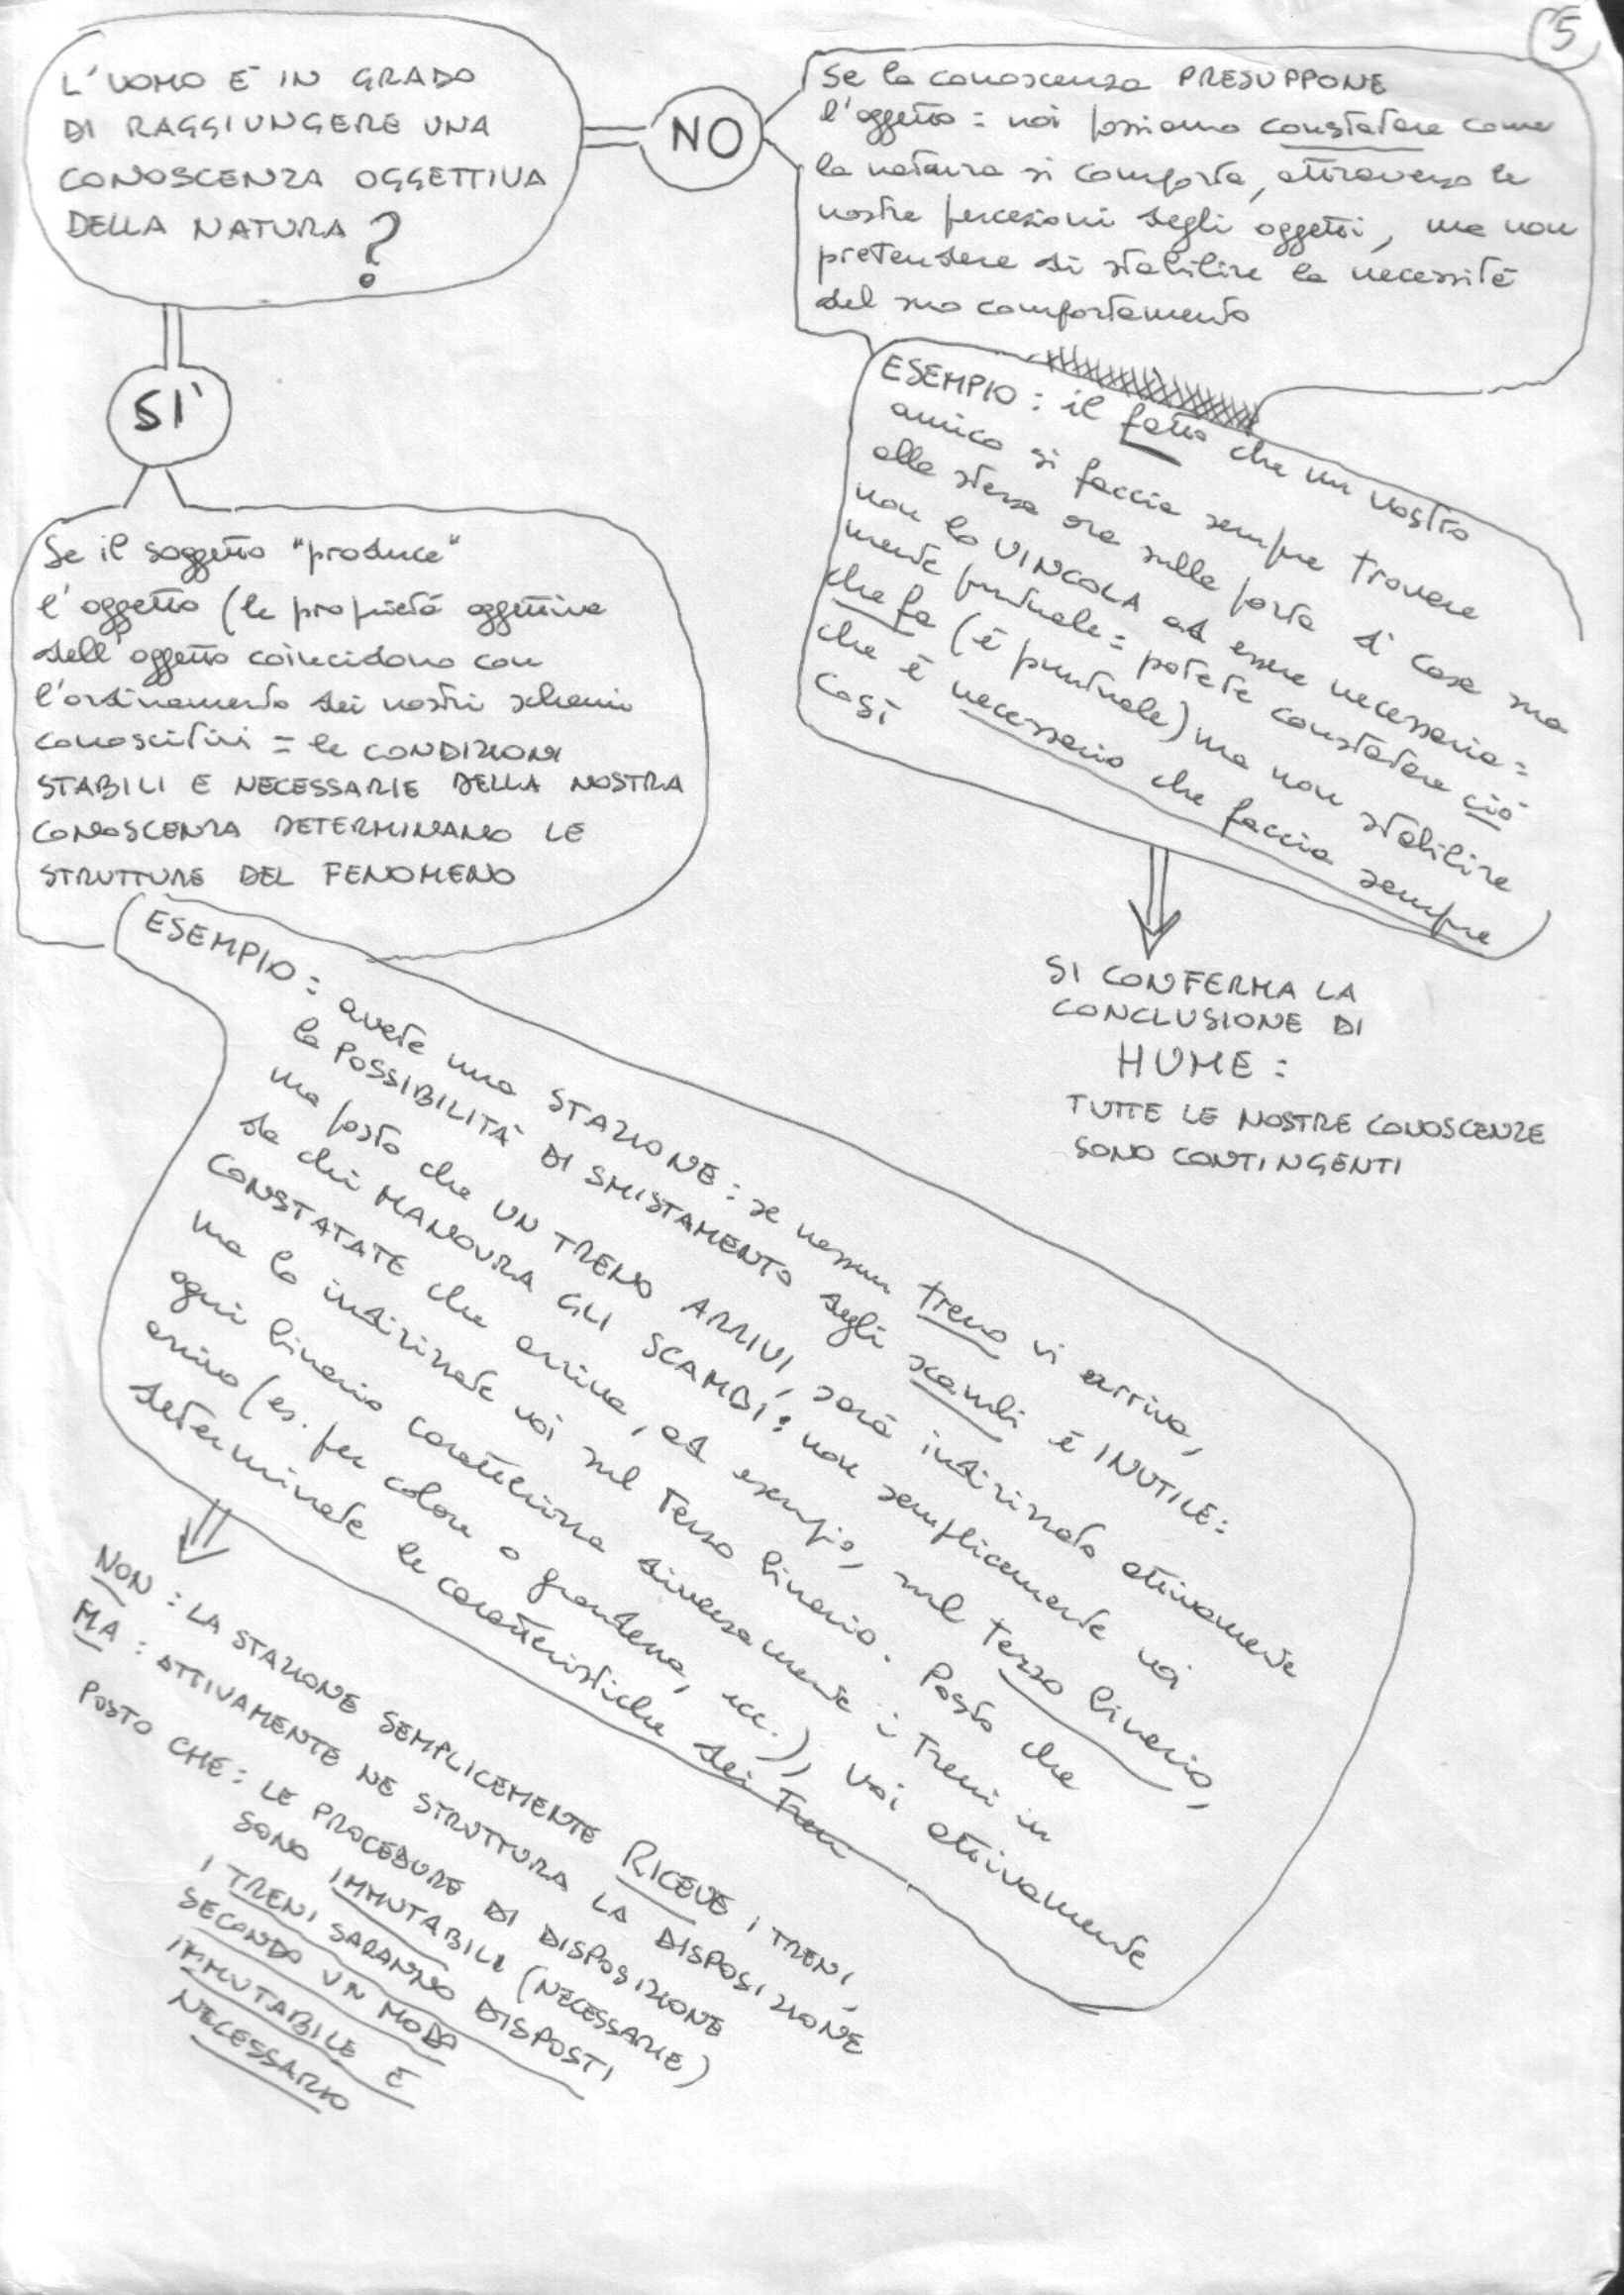 5
L'UOMO E' IN GRADO
DI RAGGIUNGERE UNA
CONOSCENZA OGGETTIVA
DELLA NATURA?
NO
Se la conoscenza PRESUPPONE
l'oggetto = noi possiamo constatare come
la natura si comporta, attraverso le
nostre percezioni degli oggetti, ma non
pretendere di stabilire la necessità
del suo comportamento
ESEMPIO: il fatto che un vostro
amico si faccia sempre trovare
alla stessa ora sulla porta di casa sua
non lo VINCOLA ad essere necessaria=
mente puntuale = potete constatare ciò
che fa (è puntuale) ma non stabilire
che è necessario che faccia sempre
così
SI CONFERMA LA
CONCLUSIONE DI
HUME:
TUTTE LE NOSTRE CONOSCENZE
SONO CONTINGENTI
SI'
Se il soggetto "produce"
l'oggetto (le proprietà oggettive
dell'oggetto coincidono con
l'ordinamento dei nostri schemi
conoscitivi = le CONDIZIONI
STABILI E NECESSARIE DELLA NOSTRA
CONOSCENZA DETERMINANO LE
STRUTTURE DEL FENOMENO
ESEMPIO: avete una STAZIONE: se nessun treno vi arriva,
la POSSIBILITÀ DI SMISTAMENTO degli scambi è INUTILE:
ma posto che UN TRENO ARRIVI, sarà indirizzato attivamente
da chi MANOVRA GLI SCAMBI: non semplicemente voi
CONSTATATE che arriva, ad esempio, sul terzo binario,
ma lo indirizzate voi sul terzo binario. Posto che
ogni binario caratterizza diversamente i treni in
arrivo (es. per colore o grandezza, ecc.), voi attivamente
determinate le caratteristiche dei treni
NON: LA STAZIONE SEMPLICEMENTE RICEVE I TRENI,
MA: ATTIVAMENTE NE STRUTTURA LA DISPOSIZIONE
POSTO CHE: LE PROCEDURE DI DISPOSIZIONE
SONO IMMUTABILI (NECESSARIE)
I TRENI SARANNO DISPOSTI
SECONDO UN MODO
IMMUTABILE E
NECESSARIO